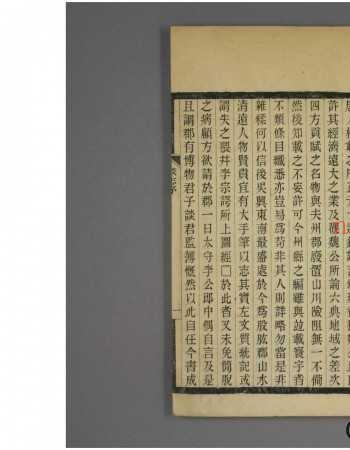 許其經濟遠大之業及觀魏公所論六典地域之差次
四方貢賦之名物與夫州郡廢置山川險阻無一不備
然後知載之不妄許可今州縣之編雖與並載寰宇者
不類條目纖悉亦豈易爲苟非其人則詳略勿當是非
雜糅何以信後吳興東南最盛處於今爲股肱郡山水
清遠人物賢貴宜有大手筆以志其實左文質統記或
謂失之猥井李宗諤所上圖經□於此者又未免簡脫
之病顧方欲請於郡一日太守李公郎中偶自言及是
且謂郡有博物君子談君監簿慨然以此自任今書成